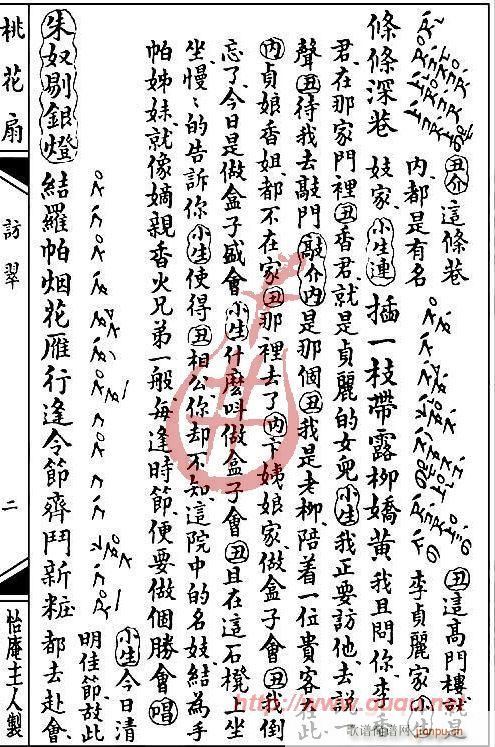 條條深巷
丑介 這條巷
內、都是有名
妓家、小生連
插一枝帶露柳嬌黃
我且問你、李香
李貞麗家 小生
丑 這高門樓就是
君、在那家門裡 丑 香君、就是貞麗的女兒 小生 我正要訪他、去說一
聲 丑 待我去敲門 敲介 內 是那個 丑 我是老柳、陪着一位貴客在此
內 貞娘香姐、都不在家 丑 那裡去了 內 卞姨娘家、做盒子會 丑 我倒
忘了、今日是做盒子盛會 小生 什麼叫做盒子會 丑 且在這石櫈上坐
坐、慢慢的告訴你 小生 使得 丑 相公、你却不知、這院中的名妓、結為手
帕姊妹、就像嫡親香火兄弟一般、每逢時節、便要做個勝會 唱
朱奴剔銀燈
結羅帕烟花雁行逢令節齊鬥新粧
小生 今日清
明佳節、故此
都去赴會、
桃花扇
訪翠
二
怡庵主人製
http://www.auau.net
歌谱简谱网 jianpu.cn